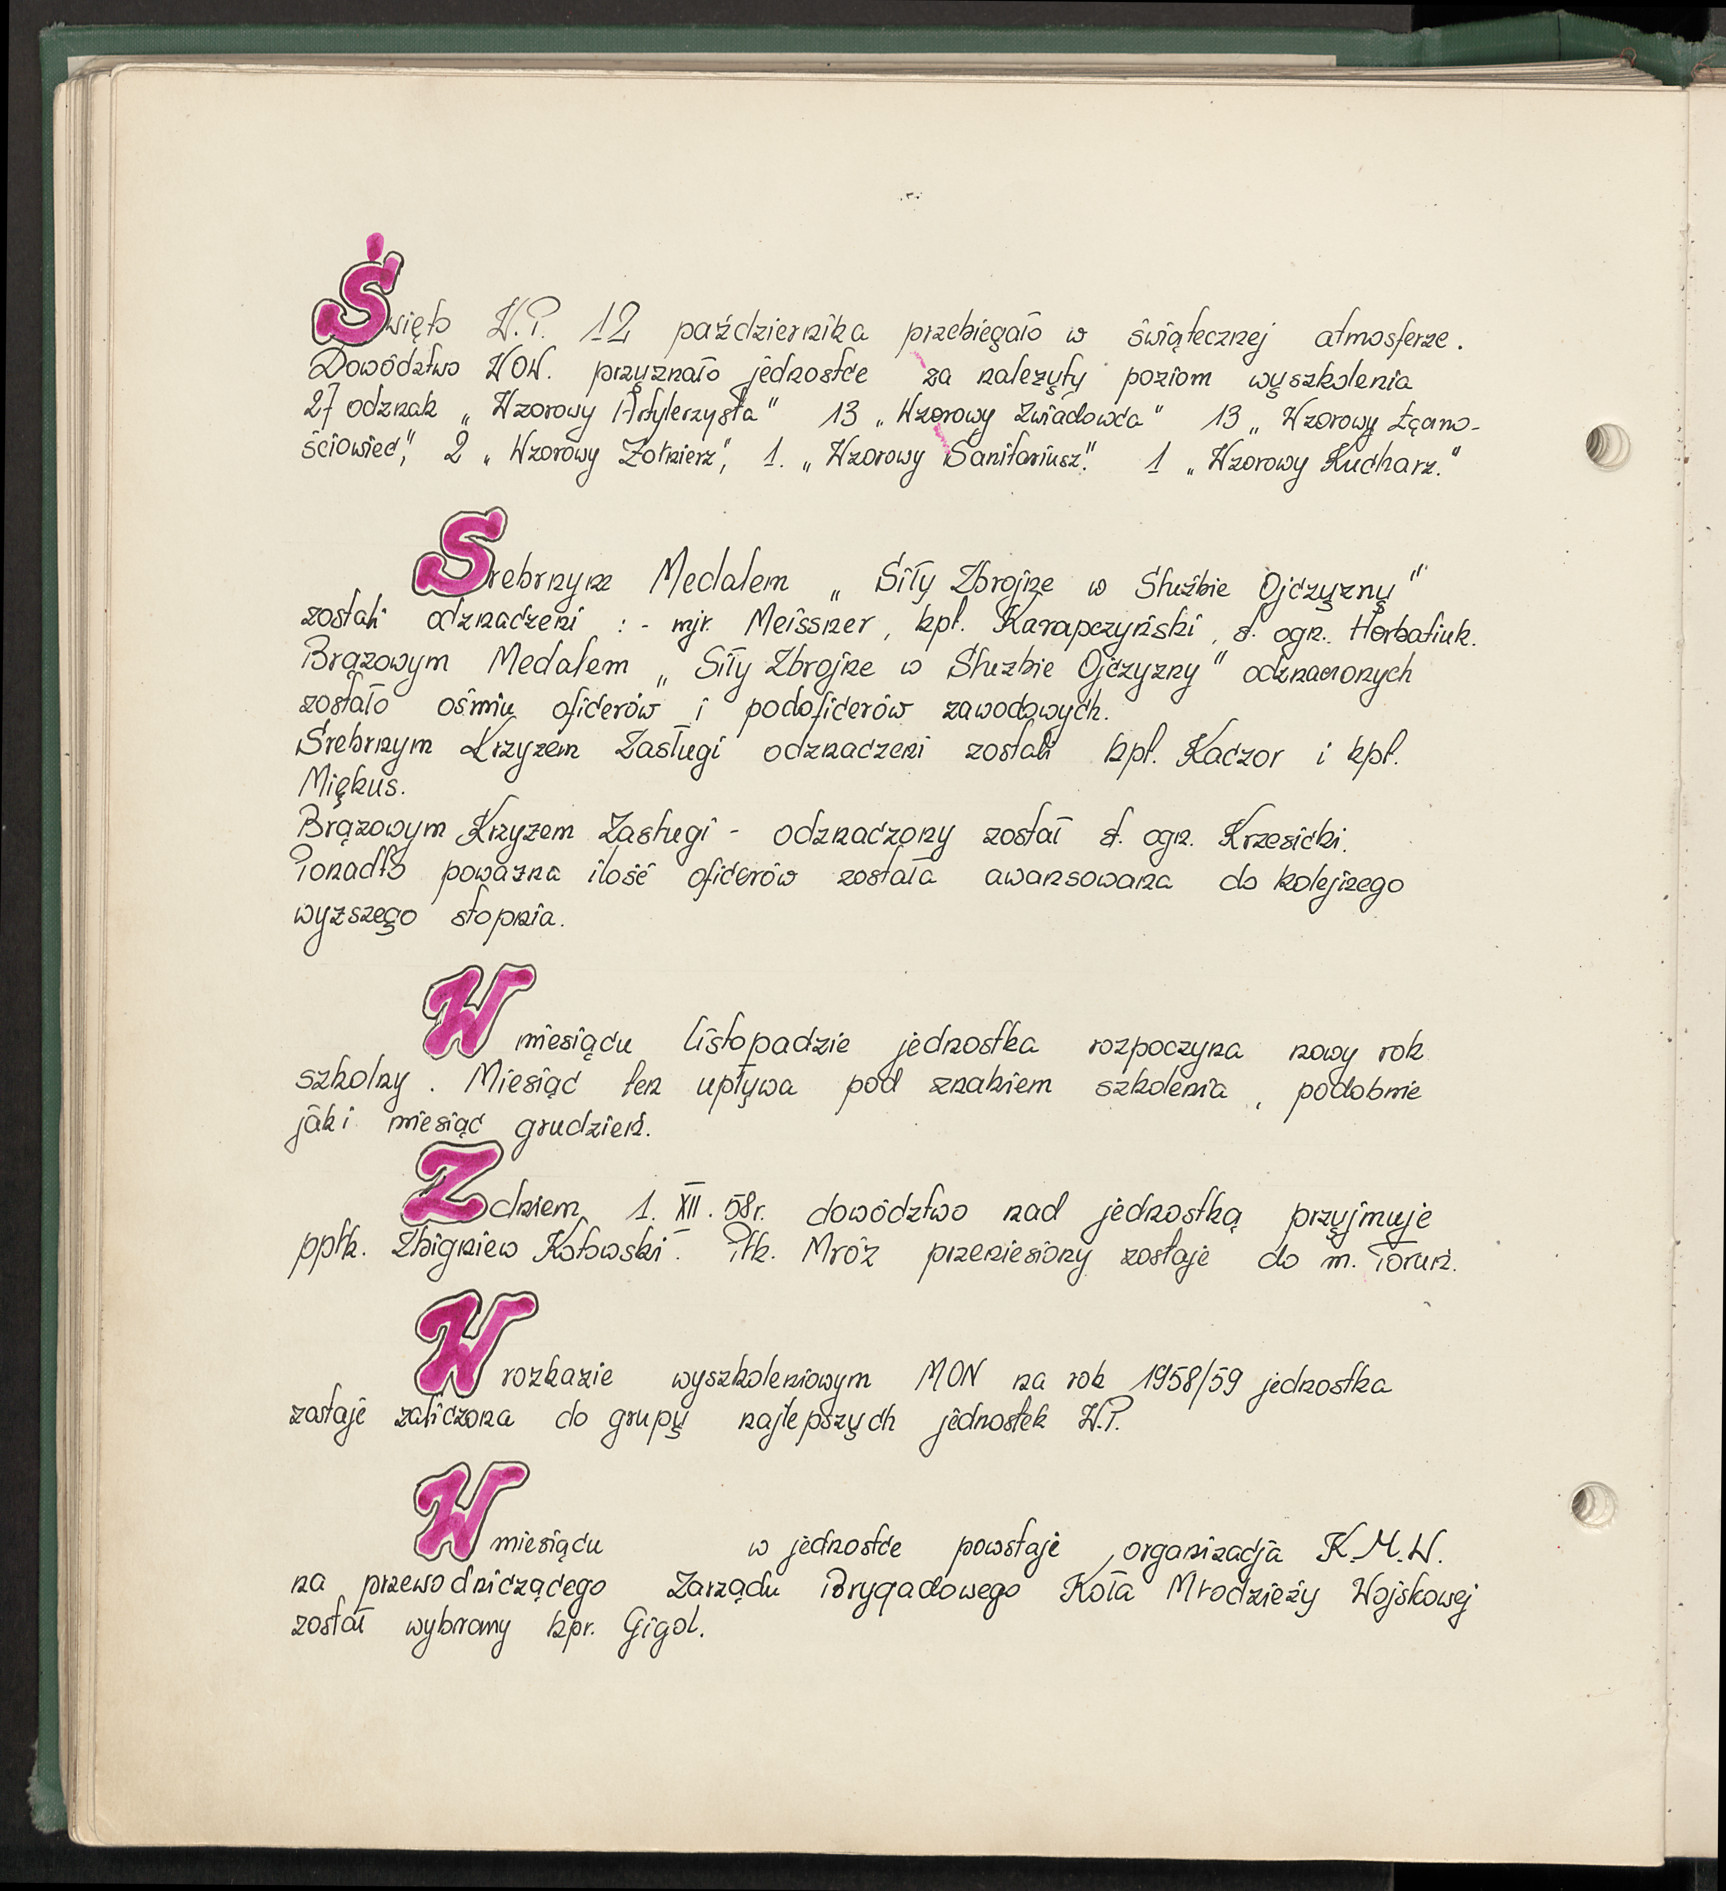 Święto W.P. 12 października przebiegało w świątecznej atmosferze.
Dowództwo WOW. przyznało jednostce za należyty poziom wyszkolenia
27 odznak „Wzorowy Artylerzysta" 13 „Wzorowy Zwiadowca" 13 „Wzorowy Łączno-
ściowiec", 2 „Wzorowy Żołnierz", 1. „Wzorowy Sanitariusz." 1 „Wzorowy Kucharz."
Srebrnym Medalem „Siły Zbrojne w Służbie Ojczyzny"
zostali odznaczeni : - mjr. Meissner, kpt. Karapczyński, st. ogn. Horbatiuk.
Brązowym Medalem „Siły Zbrojne w Służbie Ojczyzny" odznaczonych
zostało ośmiu oficerów i podoficerów zawodowych.
Srebrnym Krzyżem Zasługi odznaczeni zostali kpt. Kaczor i kpt.
Miękus.
Brązowym Krzyżem Zasługi - odznaczony został st. ogn. Krzesicki.
Ponadto poważna ilość oficerów została awansowana do kolejnego
wyższego stopnia.
W miesiącu listopadzie jednostka rozpoczyna nowy rok
szkolny. Miesiąc ten upływa pod znakiem szkolenia, podobnie
jak i miesiąc grudzień.
Z dniem 1. XII. 58r. dowództwo nad jednostką przyjmuje
ppłk. Zbigniew Kotowski. Płk. Mróz przeniesiony zostaje do m. Toruń.
W rozkazie wyszkoleniowym MON na rok 1958/59 jednostka
zostaje zaliczona do grupy najlepszych jednostek W.P.
W miesiącu w jednostce powstaje organizacja K.M.W.
na przewodniczącego Zarządu Brygadowego Koła Młodzieży Wojskowej
został wybrany kpr. Gigol.